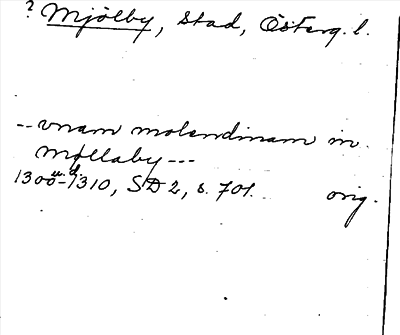 ? Mjölby, stad, Österg. l.
-- vnam molendinam in
Møllaby ---
1300-1310, SD 2, s. 701. orig.